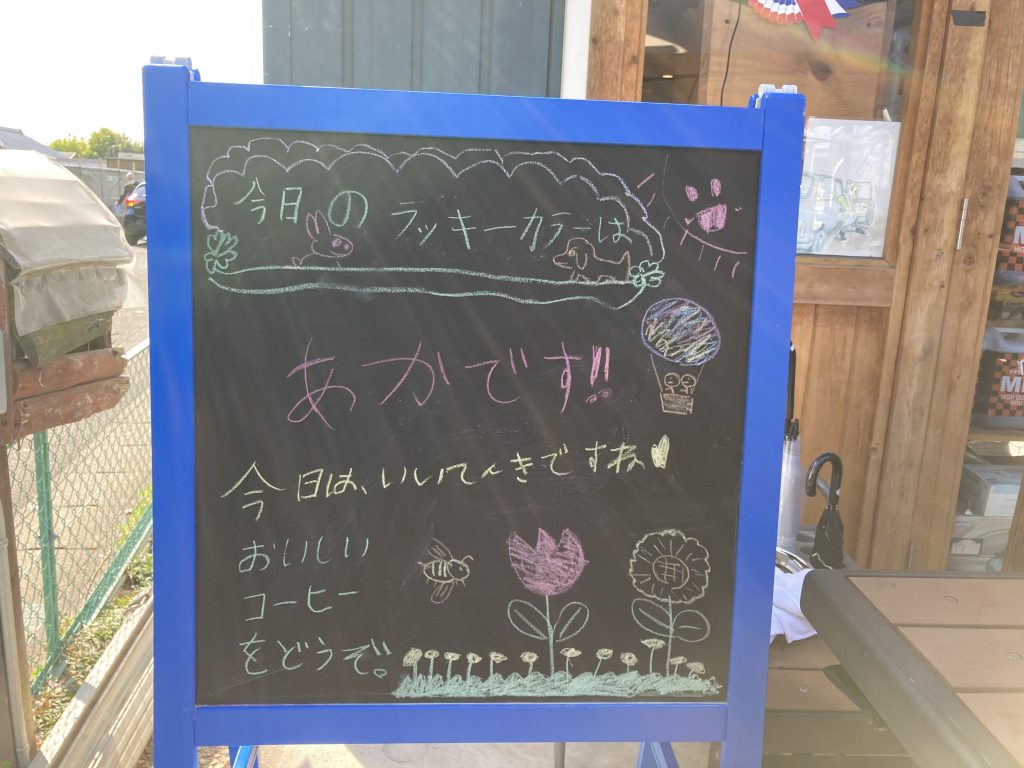 今日のラッキーカラーは
あかです!!
今日は、いいてんきですね♥
おいしい
コーヒー
をどうぞ。